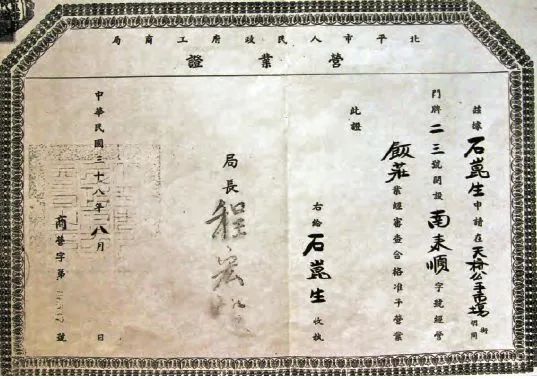 北平市人民政府工商局
營業證
茲據石崑生申請在天桥公平市場街胡同
門牌二三號開設南來順字號經營
飯莊業經審查合格准予營業
此證
右給石崑生收执
局長程宏毅
中華民國三十八年八月 日
商營字第 號